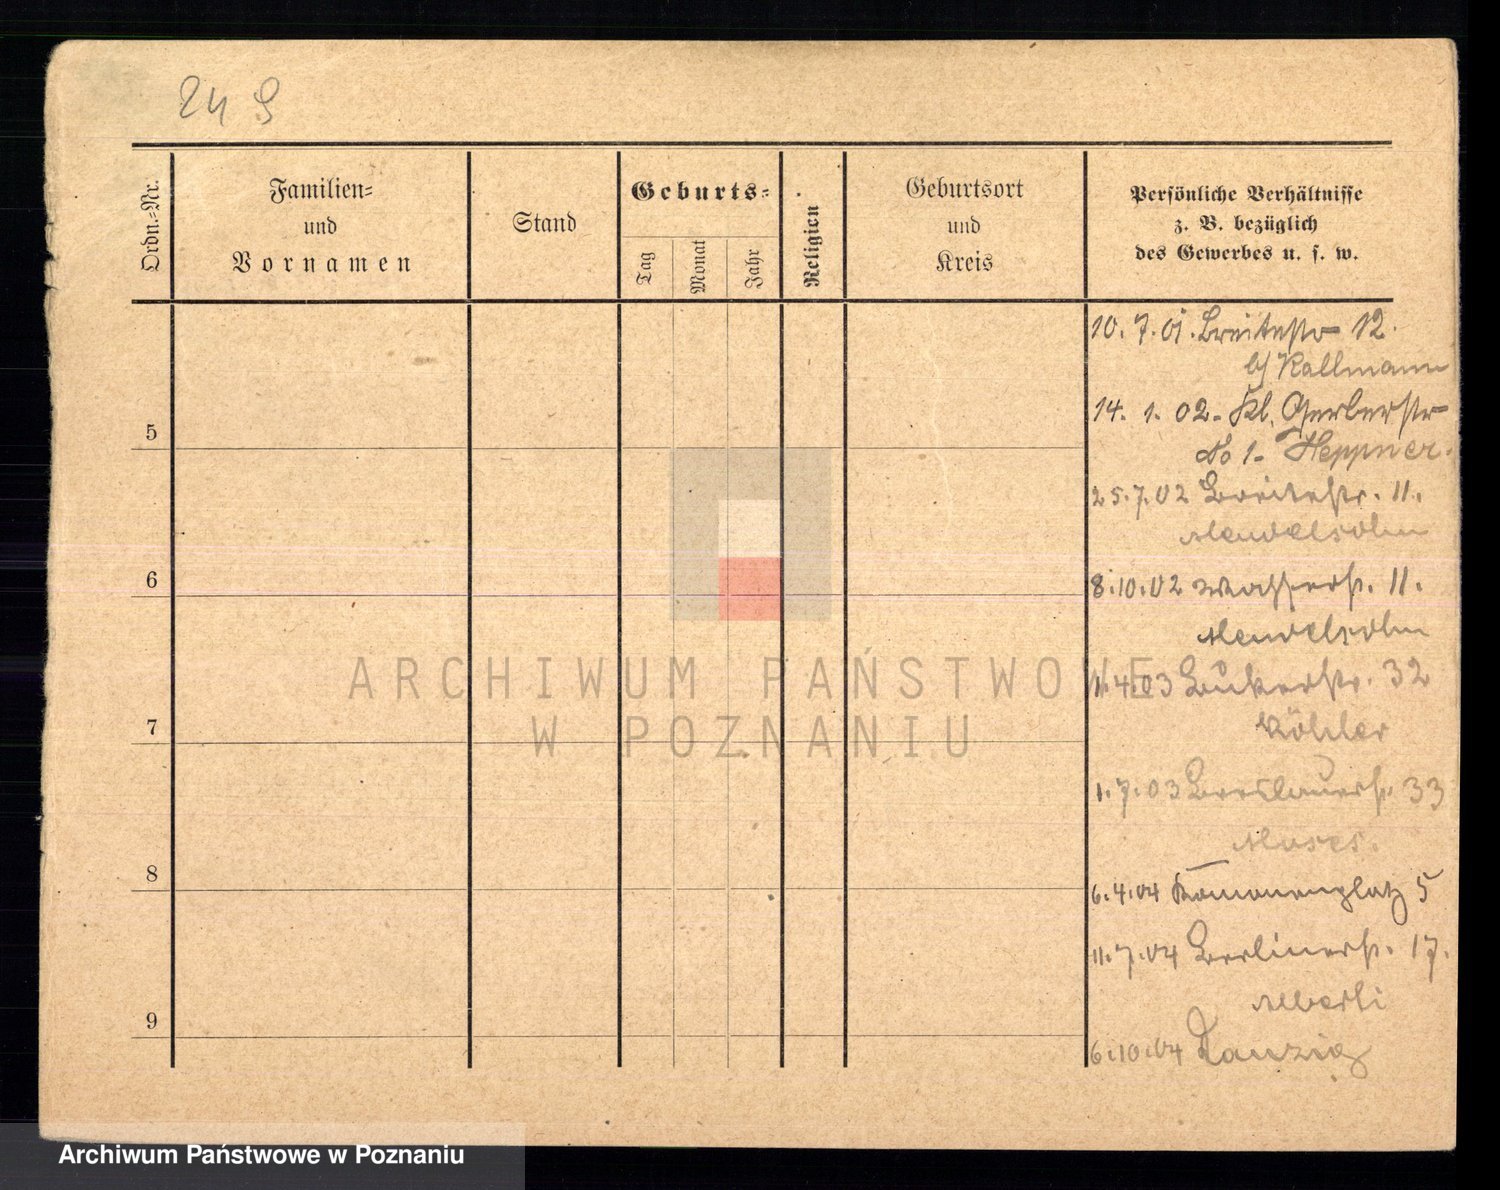 24 9
Ordn.=Nr.
Familien=
und
Vornamen
Stand
Geburts=
Tag
Monat
Jahr
Religion
Geburtsort
und
Kreis
Persönliche Verhältnisse
z. B. bezüglich
des Gewerbes u. s. w.
10. 7. 01. Breitestr 12.
b/ Kallmann
14. 1. 02. Kl. Gerberstr
5
No 1. Heppner.
25. 7. 02 Breitestr. 11.
Mendelsohn
6
8. 10. 02 Wasserstr. 11.
Mendelsohn
1. 4. 03 32
Köhler
7
1. 7. 03 Breslauerstr. 33
Moses.
8
6. 4. 04 5
11. 7. 04 Berlinerstr. 17.
Alberti
9
6. 10. 04 Danzig
ARCHIWUM PAŃSTWOWE
W POZNANIU
Archiwum Państwowe w Poznaniu